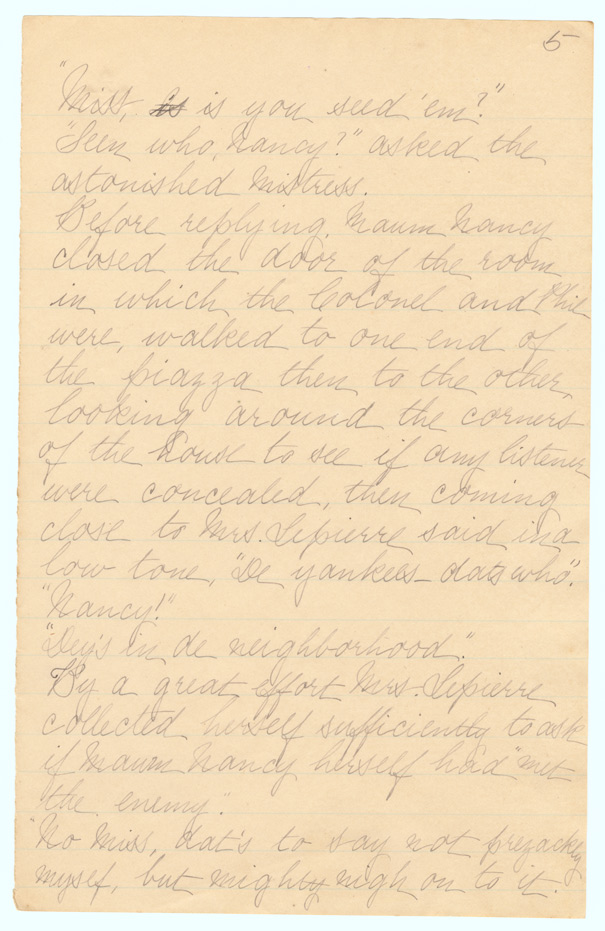 5
"Miss, is is you seed 'em?"
"Seen who, Nancy?" asked the
astonished Mistress.
Before replying, Maum Nancy
closed the door of the room
in which the Colonel and Phil
were, walked to one end of
the piazza then to the other,
looking around the corners
of the house to see if any listener
were concealed, then coming
close to Mrs. Lepierre said in a
low tone, "De yankees– dats who".
"Nancy!"
"Dey's in de neighborhood".
By a great effort Mrs. Lepierre
collected herself sufficiently to ask
if Maum Nancy herself had "met
the enemy".
"No Miss, dat's to say not prezackly
myself, but mighty nigh on to it.